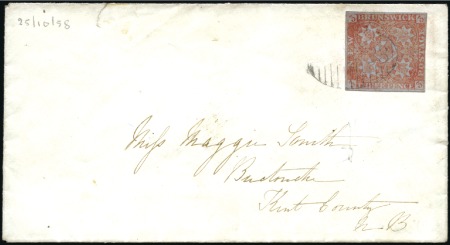 25/10/58
NEW BRUNSWICK POSTAGE
Miss Maggie Smith
Buctouche
Kent County
N.B